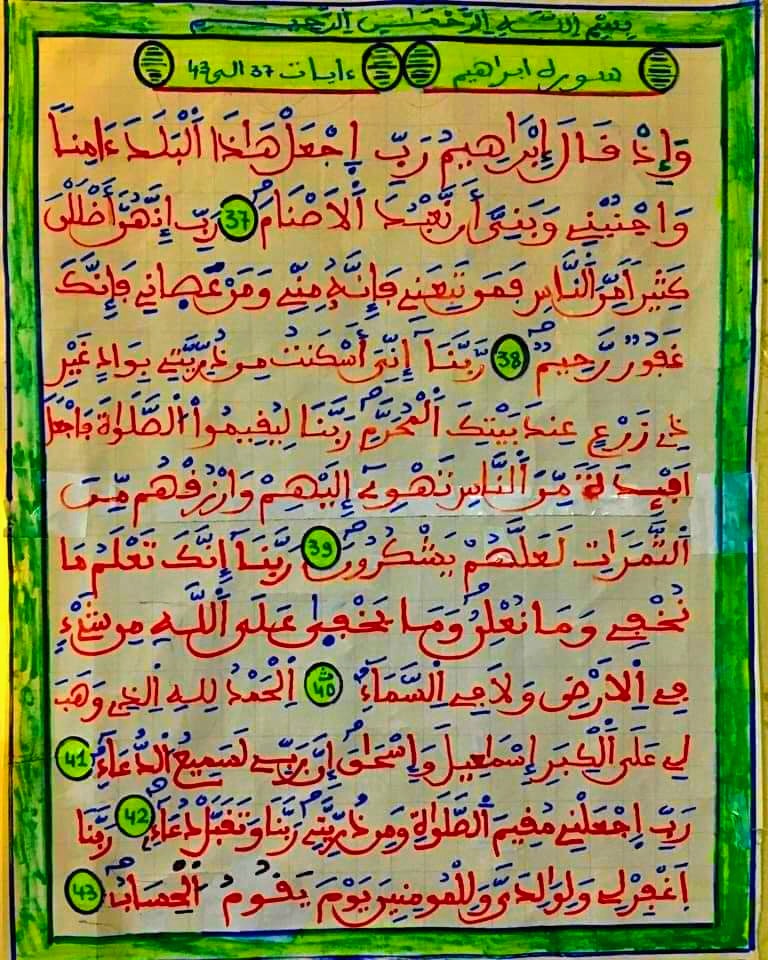 بِسْمِ اللَّهِ الرَّحْمَٰنِ الرَّحِيمِ
سورة ابراهيم ءايات 37 الى 43
وَإِذْ قَالَ إِبْرَاهِيمُ رَبِّ اِجْعَلْ هَٰذَا اَلْبَلَدَ ءَامِناً
وَاجْنُبْنِے وَبَنِيَّ أَن نَّعْبُدَ اَلَاصْنَامَ 37 رَبِّ إِنَّهُنَّ أَضْلَلْنَ
كَثِيراً مِّنَ اَلنَّاسِ فَمَن تَبِعَنِے فَإِنَّهُ مِنِّے وَمَنْ عَصَانِے فَإِنَّكَ
غَفُورٌ رَّحِيمٌ 38 رَّبَّنَا إِنِّيَ أَسْكَنتُ مِن ذُرِّيَّتِے بِوَادٍ غَيْرِ
ذِے زَرْعٍ عِندَ بَيْتِكَ اَلْمُحَرَّمِ رَبَّنَا لِيُقِيمُواْ اُلصَّلَوٰةَ فَاجْعَلَ
اَفْئِدَةً مِّنَ اَلنَّاسِ تَهْوِےٓ إِلَيْهِمْ وَارْزُقْهُم مِّنَ
اَلثَّمَرَاتِ لَعَلَّهُمْ يَشْكُرُونَ 39 رَبَّنَا إِنَّكَ تَعْلَمُ مَا
نُخْفِے وَمَا نُعْلِنُ وَمَا يَخْفَىٰ عَلَى اَللَّهِ مِن شَےْءٍ
فِے اِلَارْضِ وَلَا فِے اِلسَّمَآءِ 40 اِلْحَمْدُ لِلهِ اِلذِے وَهَبَ
لِے عَلَى اَلْكِبَرِ إِسْمَٰعِيلَ وَإِسْحَٰقَ إِنَّ رَبِّے لَسَمِيعُ اُلدُّعَآءِ 41
رَبِّ اِجْعَلْنِے مُقِيمَ اَلصَّلَوٰةِ وَمِن ذُرِّيَّتِے رَبَّنَا وَتَقَبَّلْ دُعَآءِ 42 رَبَّنَا
اَغْفِرْ لِے وَلِوَٰلِدَيَّ وَلِلْمُومِنِينَ يَوْمَ يَقُومُ اُلْحِسَابُ 43